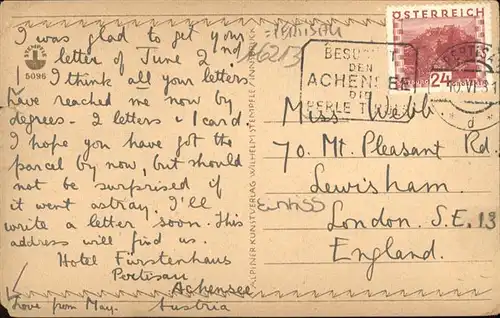 I was glad to get your
letter of June 2nd.
I think all your letters
have reached me now by
degrees - 2 letters & 1 card.
I hope you have got the
parcel by now, but should
not be surprised if
it went astray. I'll
write a letter soon. This
address will find us.
Hotel Fürstenhaus
Pertisau
Achensee
Austria
Love from May.
STEMPFLE
5096
ALPINER KUNSTVERLAG WILHELM STEMPFLE, INNSBRUCK
PERTISAU
A6213
BESUCHET
DEN
ACHENSEE
DIE
PERLE TIROLS
ÖSTERREICH
24
PERTISAU
10.VI.31
d
Miss Webb
70. Mt. Pleasant Rd.
Lewisham.
London. S.E.13
England.